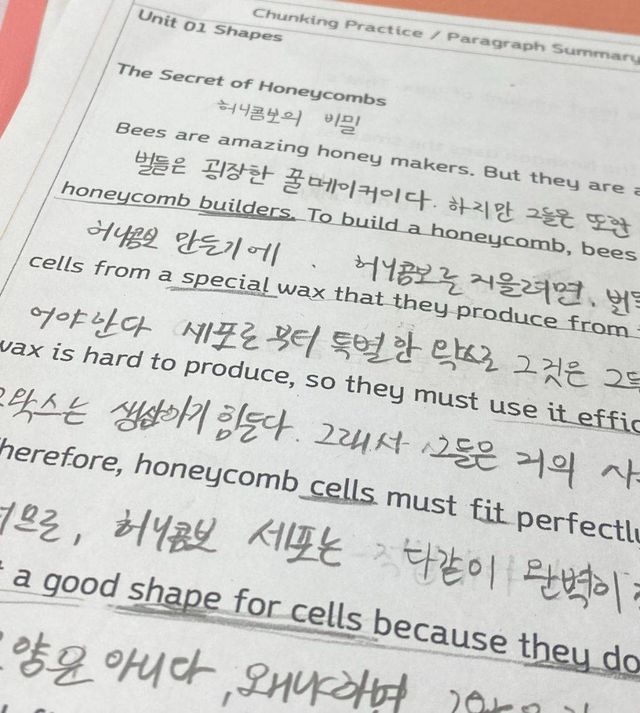 Chunking Practice / Paragraph Summary
Unit 01 Shapes
The Secret of Honeycombs
허니콤보의 비밀
Bees are amazing honey makers. But they are
벌들은 굉장한 꿀메이커이다. 하지만 그들은 또한
honeycomb builders. To build a honeycomb, bees
허니콤보 만들기에 . 허니콤보를 지을려면,
cells from a special wax that they produce from
어야한다 세포로부터 특별한 왁스로 그것은
wax is hard to produce, so they must use it
왁스는 생산하기 힘들다. 그래서 그들은 거의
Therefore, honeycomb cells must fit perfectly
허니콤보 세포는 다같이 완벽히
a good shape for cells because they do
양은 아니다, 왜냐하면